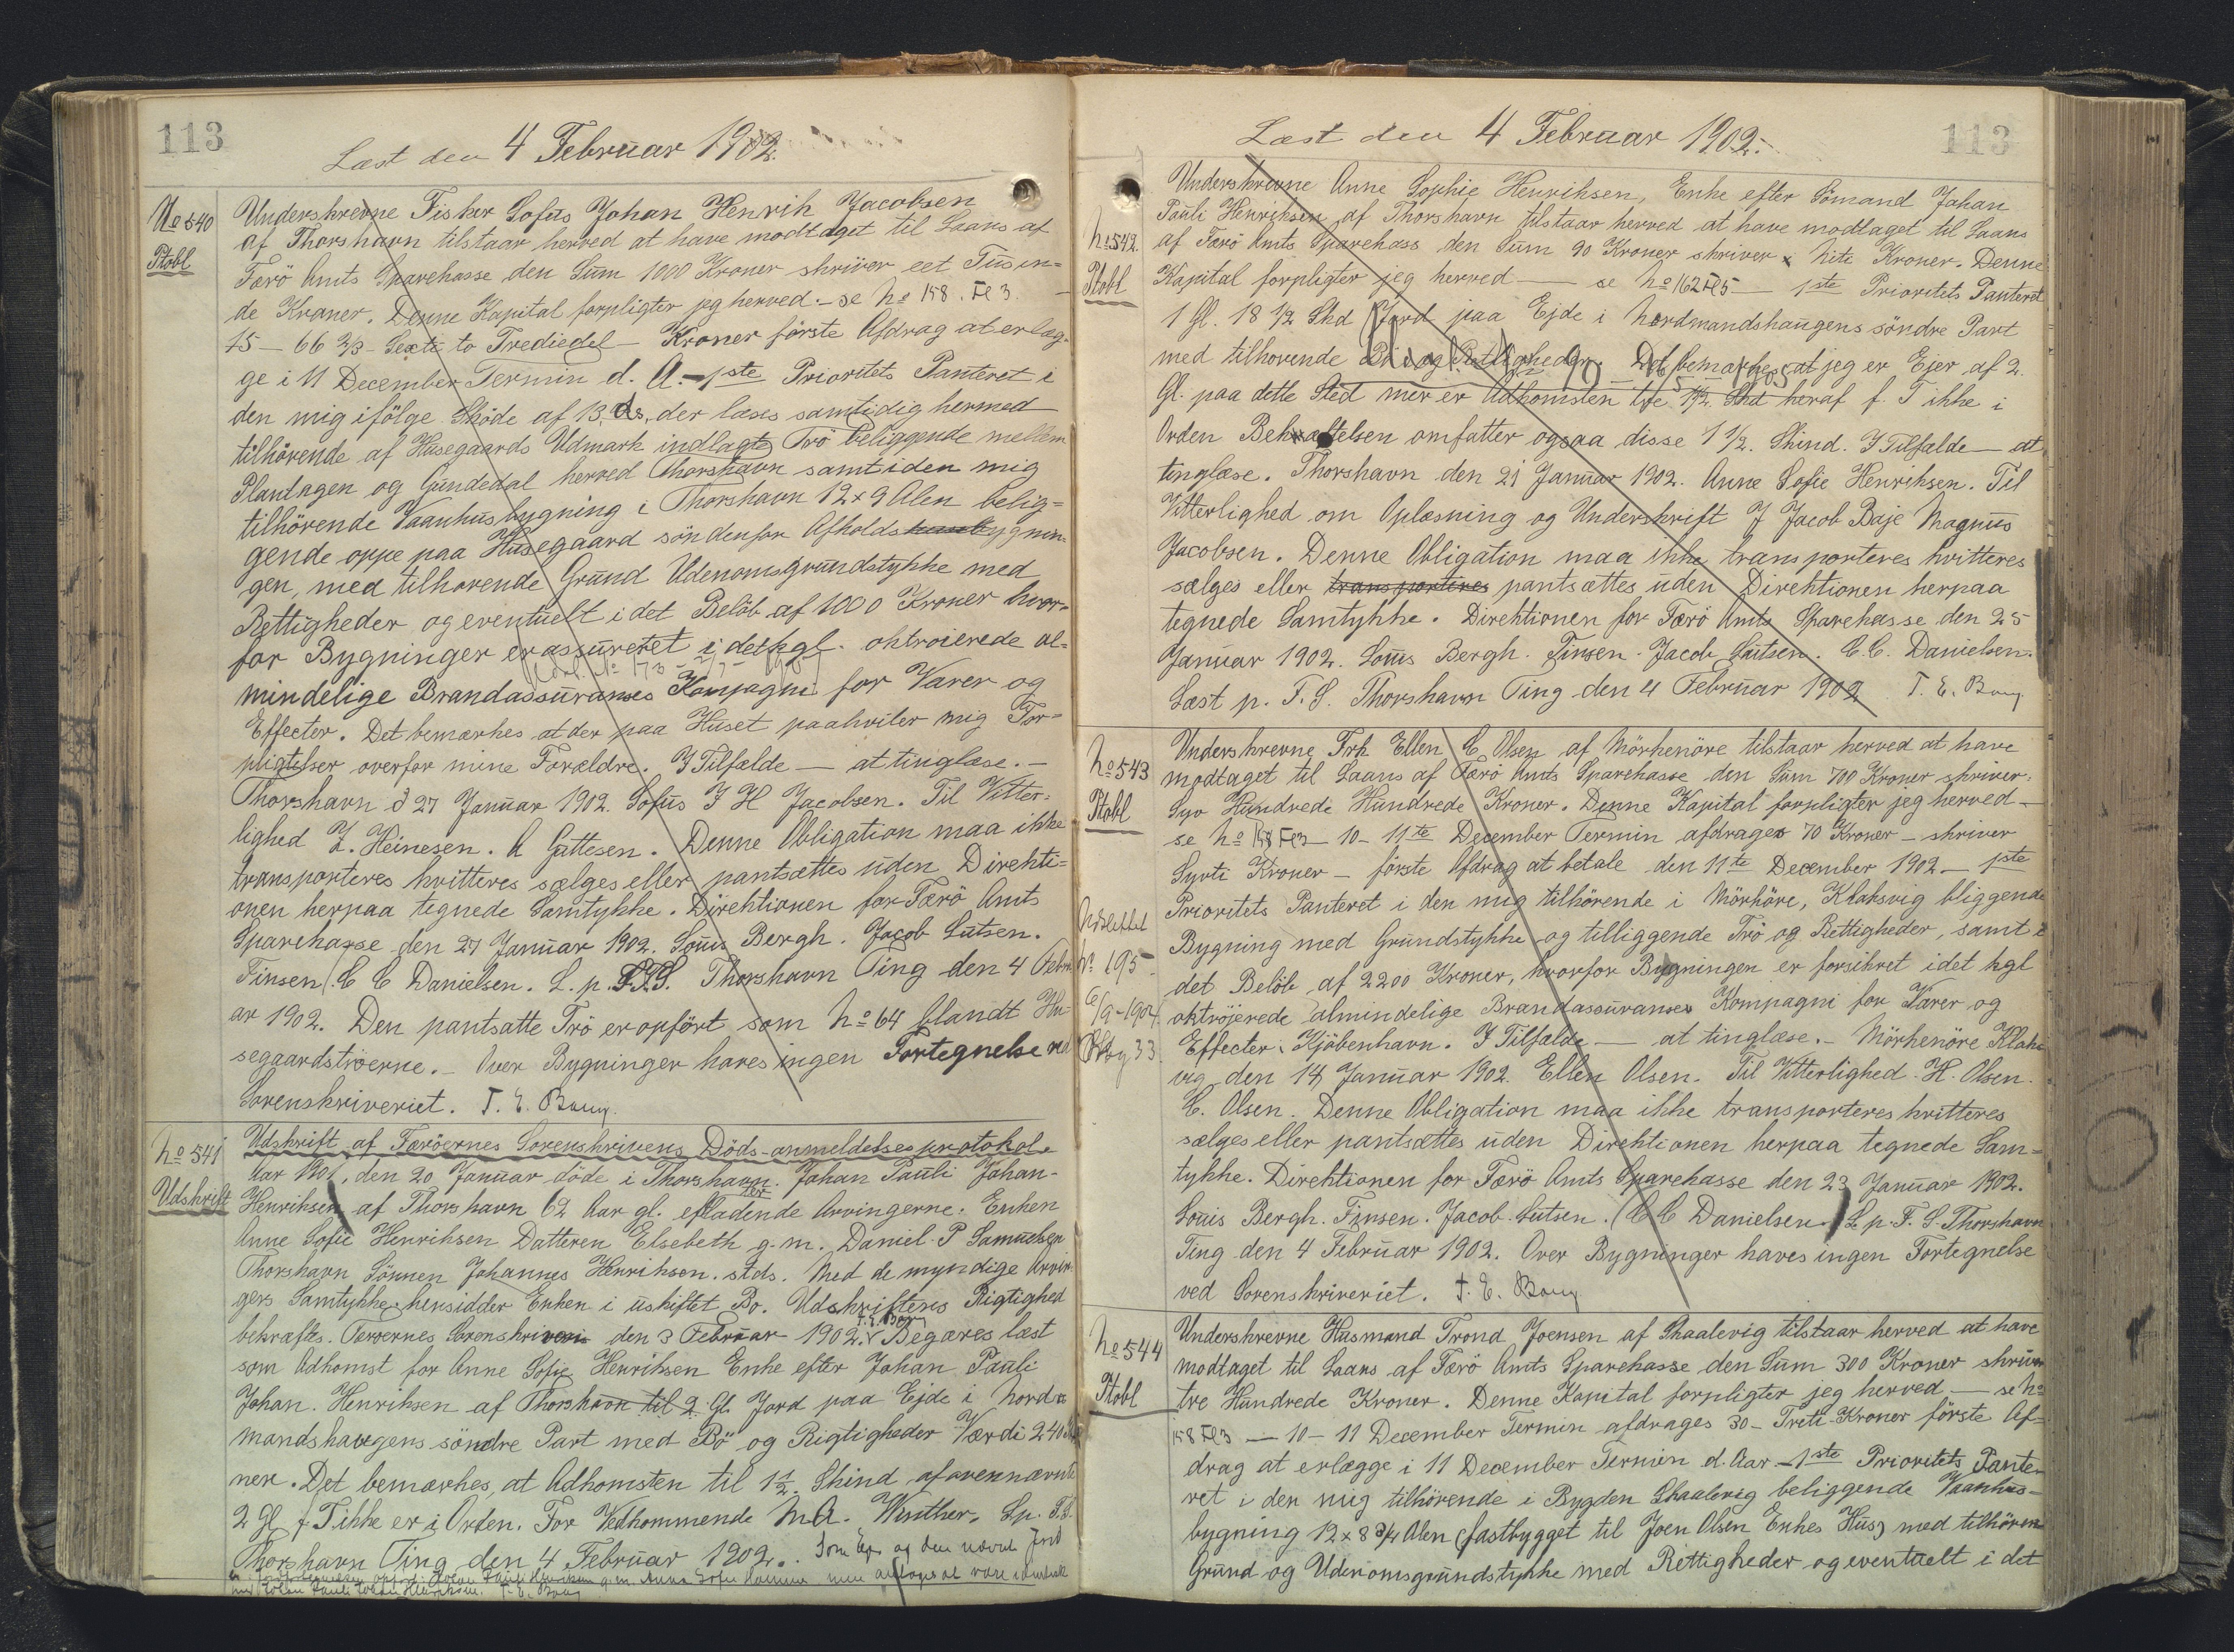 113
Læst den 4 Februar 1902.
No 540
Ptobl
Underskrevne Fisker Sofus Johan Henrik Jacobsen
af Thorshavn tilstaar herved at have modtaget til Laans af
Færö Amts Sparekasse den Sum 1000 Kroner skriver eet Tusin=
de Kroner. Denne Kapital forpligter jeg herved - se No 158. Fl 3. -
15 - 66 2/3 - Sexti to Trediedel - Kroner förste Afdrag at erlæg-
ge i 11 December Termin d. A. - 1ste Prioritets Panteret i
den mig ifölge Sköde af 13 ds. der læses samtidig hermed
tilhörende af Husegaards Udmark indlagte Trö beliggende mellem
Plantagen og Gundedal herved Thorshavn samt i den mig
tilhörende Vaanhusbygning i Thorshavn 12 x 9 Alen belig=
gende oppe paa Husegaard söndenfor Afholdsbygnin-
gen, med tilhörende Grund Udenomsgrundstykke med
Rettigheder og eventuelt i det Belöb af 1000 Kroner hvor=
for Bygninger er assureret i det kgl. oktroierede al=
mindelige Brandassurances Kompagni for Varer og
Effecter. Det bemærkes at der paa Huset paahviler mig For=
pligtelser overfor mine Forældre. I Tilfælde - at tinglæse. -
Thorshavn d 27 Januar 1902. Sofus J H Jacobsen. Til Vitter=
lighed Z. Heinesen. A Guttesen. Denne Obligation maa ikke
transporteres kvitteres sælges eller pantsættes uden Direkti=
onen herpaa tegnede Samtykke. Direktionen for Færö Amts
Sparekasse den 27 Januar 1902. Louis Bergh. Jacob Lutzen.
Finsen. C C Danielsen. L. p. F.S. Thorshavn Ting den 4 Febru
ar 1902. Den pantsatte Trö er opfört som No 64 blandt Hu-
segaardströerne. - Over Bygninger haves ingen Fortegnelse ved
Sorenskriveriet. T. E. Bang.
No 541
Udskrift
Udskrift af Færöernes Sorenskrivens Döds-anmeldelsesprotokol.
Aar 1901, den 20 Januar döde i Thorshavn. Johan Pauli Johan-
Henriksen af Thorshavn 62 Aar gl. efterladende Arvingerne: Enken
Anne Sofie Henriksen Datteren Elsebeth g. m. Daniel P Samuelsen
Thorshavn Sönnen Johannes Henriksen. stds. Med de myndige Arvin-
gers Samtykke hensidder Enken i uskiftet Bo. Udskriftens Rigtighed
bekræftes. Færöernes Sorenskriveri den 3 Februar 1902. T. E. Bang Begæres læst
som Adkomst for Anne Sofie Henriksen Enke efter Johan Pauli
Johan. Henriksen af Thorshavn til 2 Gl. Jord paa Ejde i Nord=
mandshaugens söndre Part med Bö og Rigtigheder Værdi 240 Kro
ner. Det bemærkes, at Adkomsten til 1 1/2. Skind af ovennævnte
2 Gl f. T ikke er i Orden. For Vedkommende M.A. Winther. L. p. F.S.
Thorshavn Ting den 4 Februar 1902. Som Ejer og den nævnte Jord
113
Læst den 4 Februar 1902.
No 542.
Ptobl
Underskrevne Anne Sophie Henriksen, Enke efter Sömand Johan
Pauli Henriksen af Thorshavn tilstaar herved at have modtaget til Laans
af Færö Amts Sparekass den Sum 90 Kroner skriver x niti Kroner. Denne
Kapital forpligter jeg herved - se No 162 Fl 5 - 1ste Prioritets Panteret
1 Gl. 18 1/2 Skd Jord paa Ejde i Nordmandshaugens söndre Part
med tilhörende Bö og Rettigheder. Det bemærkes, at jeg er Ejer af 2.
Gl. paa dette Sted mer er Adkomsten tre 1 1/2. Skd heraf f. T ikke i
Orden Bekræftelsen omfatter ogsaa disse 1 1/2. Skind. I Tilfælde - at
tinglæse. Thorshavn den 21 Januar 1902. Anne Sofie Henriksen. Til
Vitterlighed om Oplæsning og Underskrift J Jacob Baje Magnus
Jacobsen. Denne Obligation maa ikke transporteres kvitteres
sælges eller transporteres pantsættes uden Direktionen herpaa
tegnede Samtykke. Direktionen for Færö Amts Sparekasse den 25
Januar 1902. Louis Bergh. Finsen. Jacob Lutsen. C. C. Danielsen.
Læst p. F. S. Thorshavn Ting den 4 Februar 1902 T. E. Bang
No 543
Ptobl
Underskrevne Frk Ellen C Olsen af Mörkenöre tilstaar herved at have
modtaget til Laans af Færö Amts Sparekasse den Sum 700 Kroner skriver:
Syv Hundrede Hundrede Kroner. Denne Kapital forpligter jeg herved -
se No 158 Fl 3 - 10 - 11te December Termin afdrages 70 Kroner - skriver
Syvti Kroner - förste Afdrag at betale den 11te December 1902 - 1ste
Prioritets Panteret i den mig tilhörende i Mörköre, Klaksvig bliggende
Bygning med Grundstykke og tilliggende Trö og Rettigheder, samt i
det Belöb af 2200 Kroner, hvorfor Bygningen er forsikret i det kgl
oktröjerede almindelige Brandassurances Kompagni for Varer og
Effecter i Kjöbenhavn. I Tilfælde - at tinglæse. - Mörkenöre Klaks
vig den 14 Januar 1902. Ellen Olsen. Til Vitterlighed. H. Olsen.
C. Olsen. Denne Obligation maa ikke transporteres kvitteres
sælges eller pantsættes uden Direktionen herpaa tegnede Sam=
tykke. Direktionen for Færö Amts Sparekasse den 23 Januar 1902.
Louis Bergh. Finsen. Jacob. Lutsen. C C Danielsen. L. p. F. S. Thorshavn
Ting den 4 Februar 1902. Over Bygninger haves ingen Fortegnelse
ved Sorenskriveriet. T. E. Bang
Udslettet
No 195
6/9-1904
33
No 544
Ptobl
Underskrevne Husmand Trond Joensen af Skaalevig tilstaar herved at have
modtaget til Laans af Færö Amts Sparekasse den Sum 300 Kroner skriver
tre Hundrede Kroner. Denne Kapital forpligter jeg herved - se No
158 Fl 3 - 10 - 11 December Termin afdrages 30 - Treti - Kroner förste Af=
drag at erlægge i 11 December Termin d. Aar - 1ste Prioritets Pante-
ret i den mig tilhörende i Bygden Skaalevig beliggende Vaanhus-
bygning 12 x 8 3/4 Alen (fastbygget til Joen Olsen Enkes Hus) med tilhören
Grund og Udenomsgrundstykke med Rettigheder og eventuelt i det